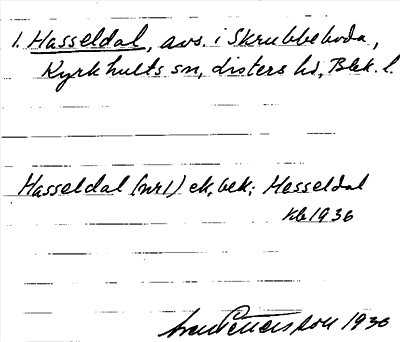 1. Hasseldal, avs. i Skrubbeboda,
Kyrkhults sn, Listers hd, Blek. l.
Hasseldal (nr1) ek, bek; Hesseldal
kb 1936
1936